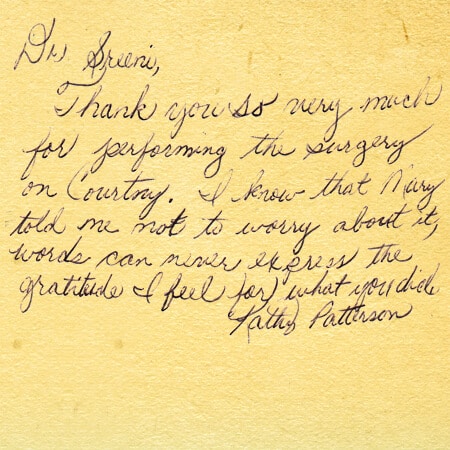 Dr. Sreeni,
Thank you so very much
for performing the surgery
on Courtny. I know that Mary
told me not to worry about it,
words can never express the
gratitude I feel for what you did.
Kathy Patterson